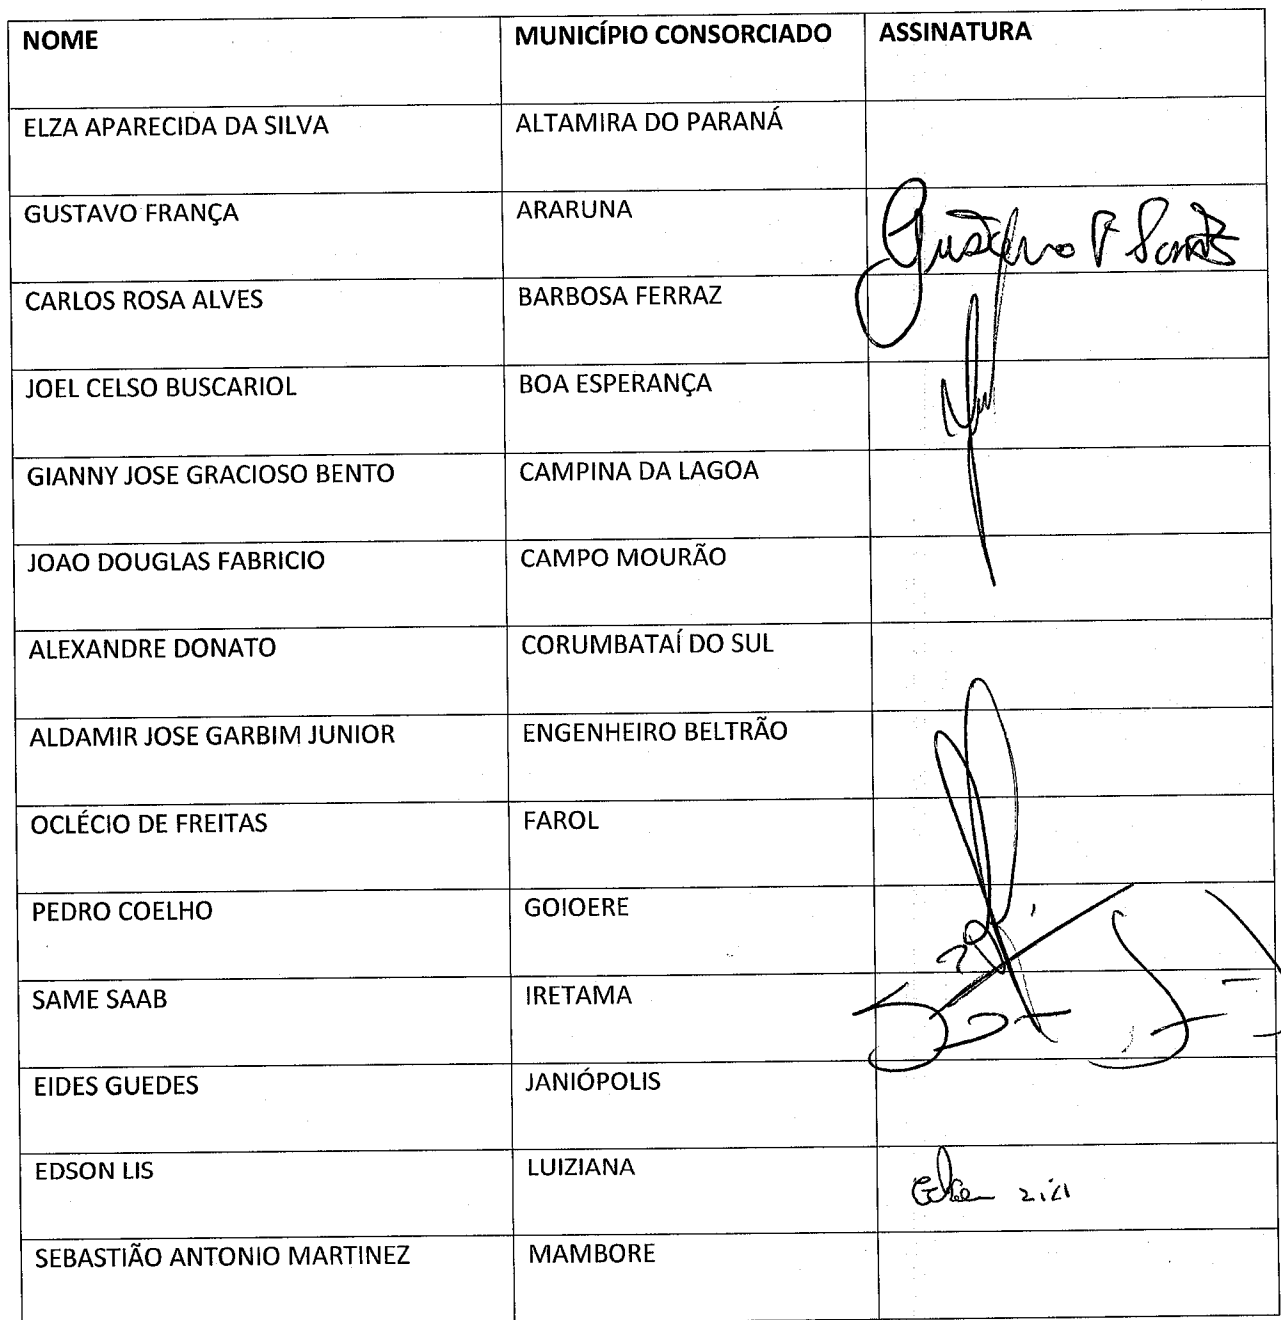 NOME MUNICÍPIO CONSORCIADO ASSINATURA
ELZA APARECIDA DA SILVA ALTAMIRA DO PARANÁ
GUSTAVO FRANÇA ARARUNA Gustavo F Santos
CARLOS ROSA ALVES BARBOSA FERRAZ
JOEL CELSO BUSCARIOL BOA ESPERANÇA
GIANNY JOSE GRACIOSO BENTO CAMPINA DA LAGOA
JOAO DOUGLAS FABRICIO CAMPO MOURÃO
ALEXANDRE DONATO CORUMBATAÍ DO SUL
ALDAMIR JOSE GARBIM JUNIOR ENGENHEIRO BELTRÃO
OCLÉCIO DE FREITAS FAROL
PEDRO COELHO GOIOERE
SAME SAAB IRETAMA
EIDES GUEDES JANIÓPOLIS
EDSON LIS LUIZIANA
SEBASTIÃO ANTONIO MARTINEZ MAMBORE